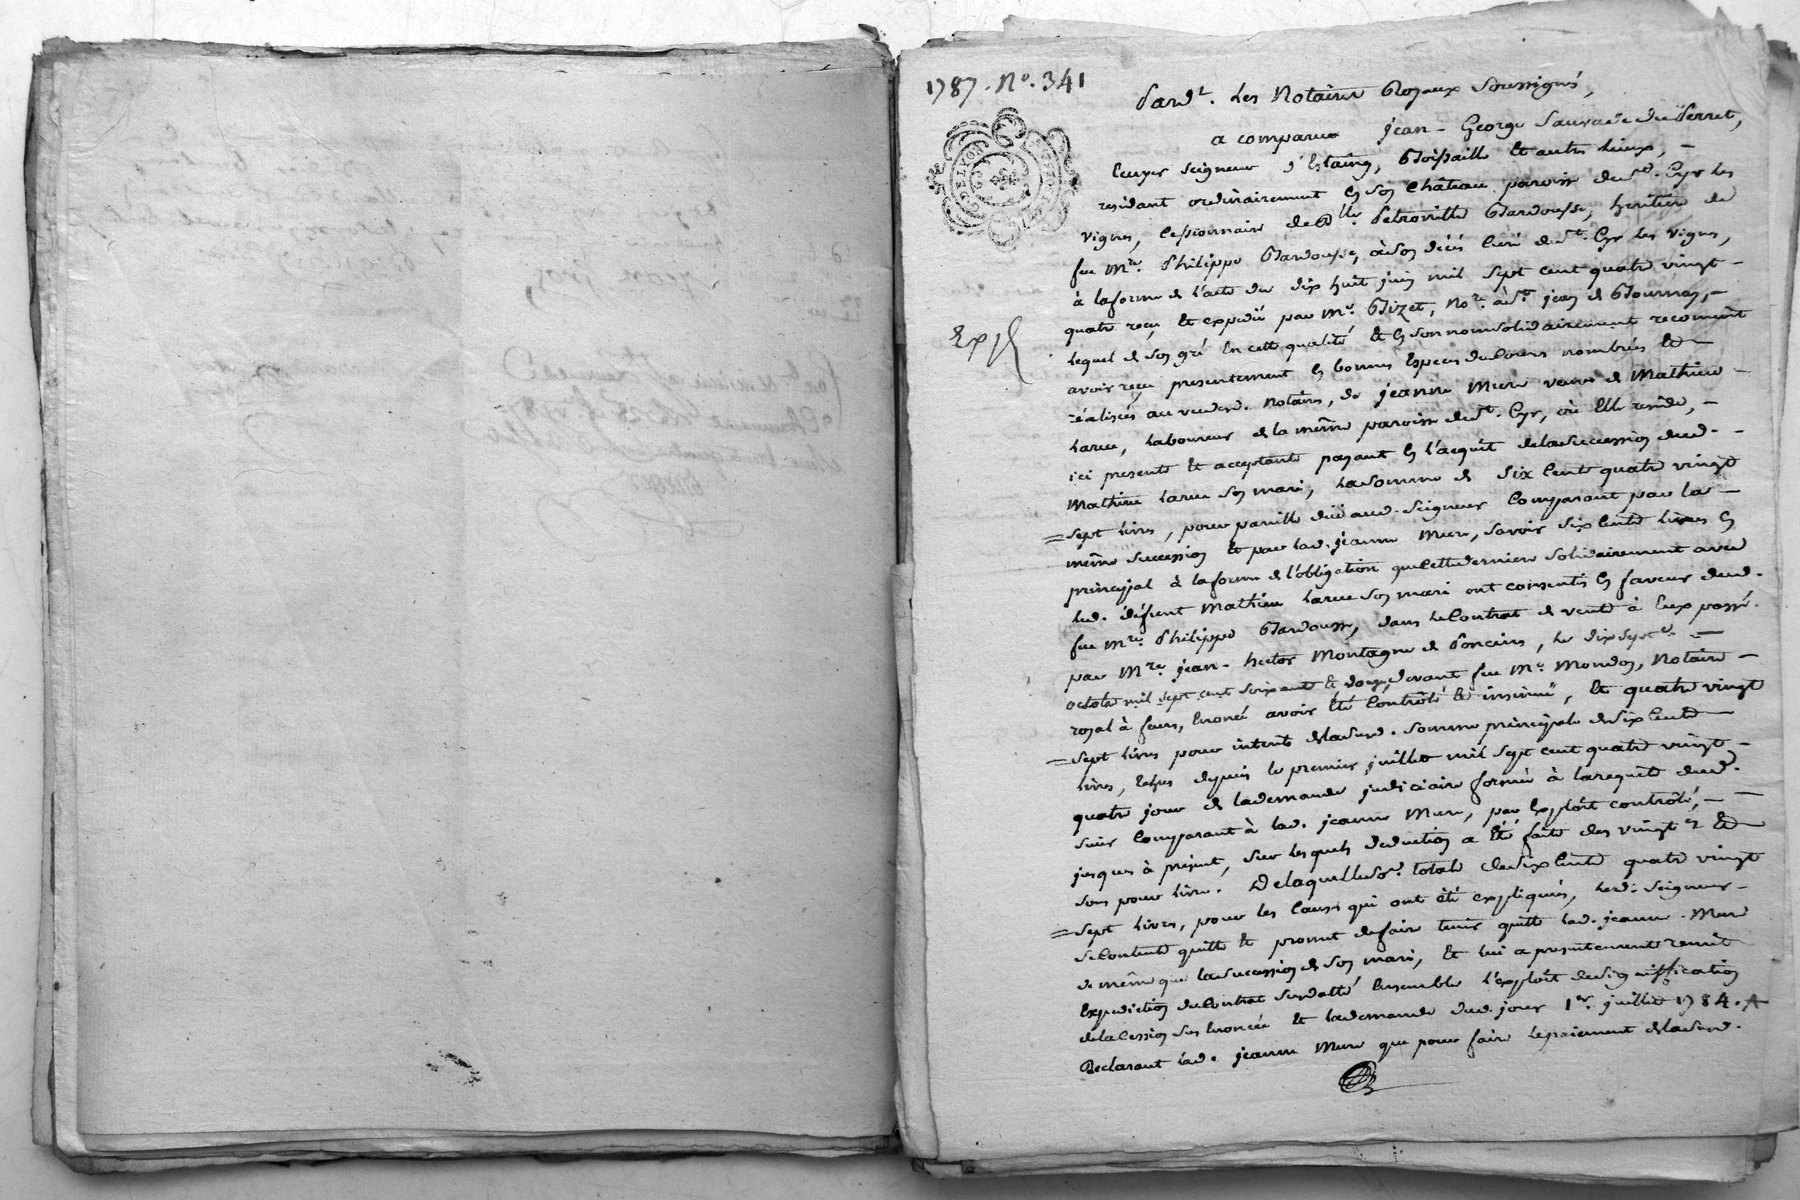 1787. N°. 341
Pard.t les Notaires Royaux Soussignés,
a comparu jean-George Sauvade du Perret,
Ecuyer Seigneur d'Estaing, Boissaille et autres Lieux, –
residant ordinairement en son Château paroisse de St. Cyr les
vignes, Cessionnaire de D.lle Petronille Bardousse, heritiere de
feu M.re Philippe Bardousse, à son décès Curé de St. Cyr les vignes,
à la forme de l'acte du dix huit juin mil sept cent quatre vingt –
quatre reçu et expedié par M.e Bizet, No.re à St. jean de Bournay, –
Exp.é
lequel de son gré En cette qualité et en son nom solidairement reconnoit
avoir reçu presentement en bonnes Especes de Cours nombrées et
réalisées au vu desd. Notaires, de jeanne Mure veuve de Mathieu –
Larue, Laboureur de la même paroisse de St. Cyr, où Elle reside, –
ici presente et acceptante payant en l'acquit de la Succession dud. –
Mathieu Larue son mari, la somme de Six Cents quatre vingt
= Sept Livres, pour pareille düe aud. Seigneur Comparant par la –
même Succession et par lad. jeanne Mure, savoir Six Cents Livres en
principal à la forme de l'obligation que cette derniere solidairement avec
led. défunt Mathieu Larue son mari ont consentis en faveur dud.
feu M.re Philippe Bardousse, dans le Contrat de vente à Eux passé
par M.re jean-hector Montagne de Poncins, le dix sept –
octobre mil sept cent soixante et douze, devant feu M.e Mondon, Notaire –
royal à feurs, Enoncé avoir Eté Contrôlé et insinué, et quatre vingt
= Sept Livres pour interets de la susd. somme principale de Six Cents
Livres, Echus depuis le premier juillet mil sept cent quatre vingt –
quatre jour de la demande judiciaire formée à la requête dud.
sieur Comparant à lad. jeanne Mure, par Exploit contrôlé, –
jusques à present, sur lesquels deduction a Eté faite des vingt.es et
sous pour Livre. De laquelle so.e totale de Six Cents quatre vingt
= Sept Livres, pour les Causes qui ont été expliquées, led. Seigneur –
se Contente quitte et promet de faire tenir quitte lad. jeanne Mure
de même que la Succession de son mari, et lui a presentement remit
Expedition du Contrat susdatté Ensemble l'exploit de signiffication
de la Cession sus Enoncée et la demande dud. jour 1.er juillet 1784. A
Declarant lad. jeanne Mure que pour faire le paiement de la susd.